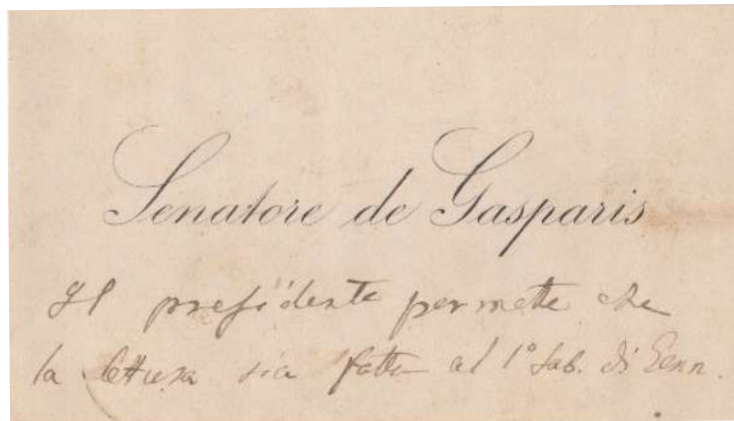 Senatore de Gasparis
Il presidente permette che
la lettura sia fatta al 1° Sab. di Genn.